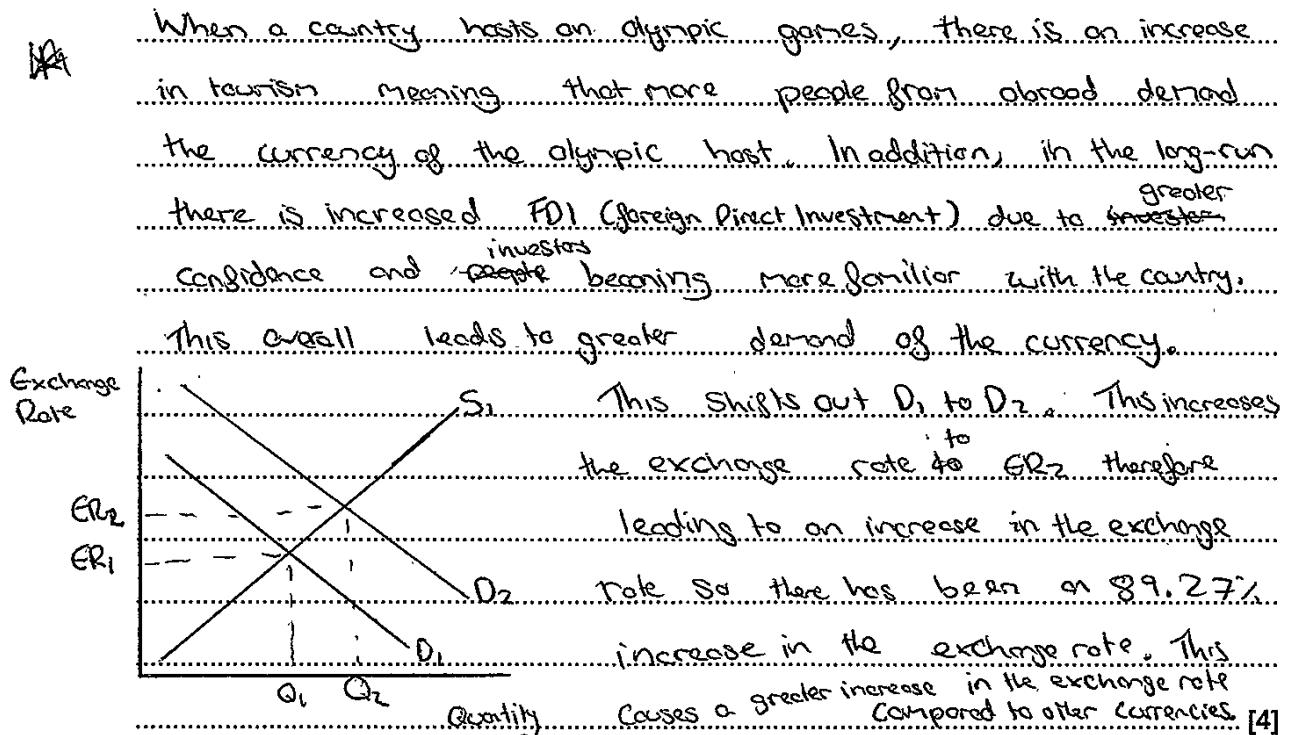 When a country hosts an olympic games, there is an increase
in tourism meaning that more people from abroad demand
the currency of the olympic host. In addition, in the long-run
there is increased FDI (foreign Direct Investment) due to greater
confidence and investors becoming more familiar with the country.
This overall leads to greater demand of the currency.
Exchange
Rate
S1
This shifts out D1 to D2. This increases
the exchange rate to ER2 therefore
ER2
leading to an increase in the exchange
ER1
D2
rate so there has been an 89.27%
D1
increase in the exchange rate. This
Q1 Q2
Quantity
causes a greater increase in the exchange rate
compared to other currencies. [4]